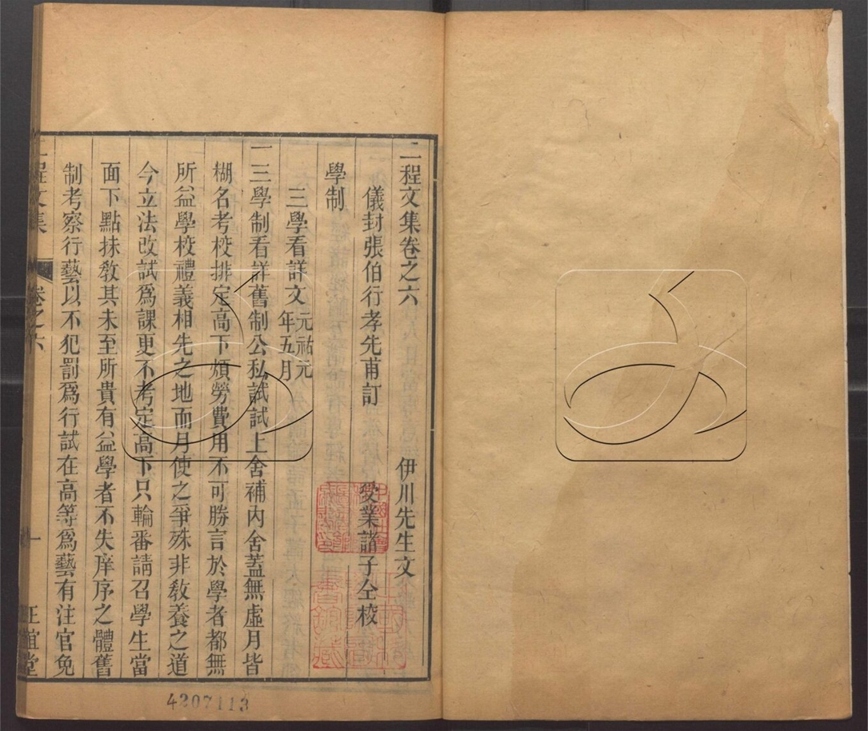 二程文集卷之六 伊川先生文
儀封張伯行孝先甫訂 受業諸子仝校
學制
三學看詳文元祐元年五月
一三學制看詳舊制公私試試上舍補內舍蓋無虛月皆
糊名考校排定高下煩勞費用不可勝言於學者都無
所益學校禮義相先之地而月使之爭殊非敎養之道
今立法改試爲課更不考定高下只輪番請召學生當
面下點抹敎其未至所貴有益學者不失庠序之體舊
制考察行藝以不犯罰爲行試在高等爲藝有注官免
二程文集 卷之六 一 正誼堂
4207113